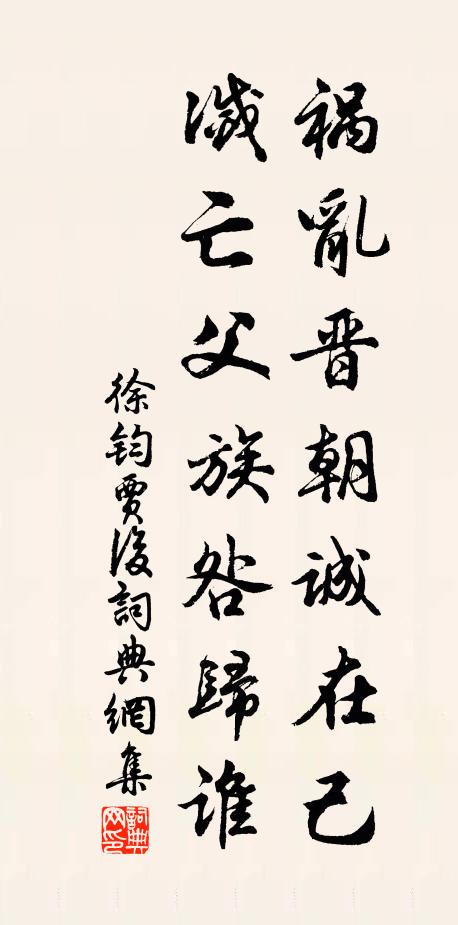 祸亂晋朝誠在己
滅亡父族咎歸誰
徐鈞賈後詞典網集
詞典網印